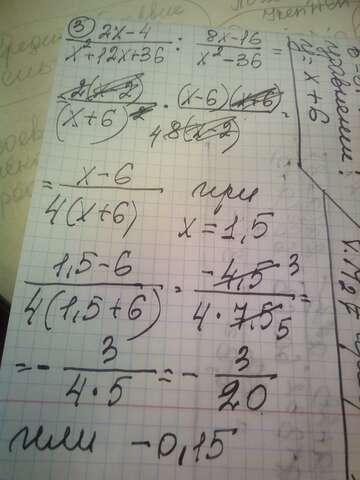 ③ (2x-4)/(x²+12x+36) : (8x-16)/(x²-36) =
2(x-2)/(x+6)² · (x-6)(x+6)/8(x-2) 4
= (x-6)/4(x+6) при
x=1,5
(1,5-6)/4(1,5+6) = -4,5 3/4·7,5 5 =
= - 3/4·5 = - 3/20
или -0,15
y=x+6